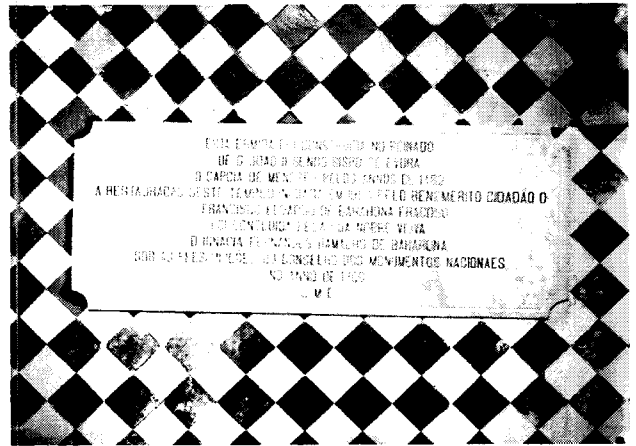 ESTA ERMIDA FOI CONSTRUIDA NO REINADO
DE D. JOÃO II SENDO BISPO DE EVORA
D. GARCIA DE MENEZES PELOS ANNOS DE
A RESTAURAÇÃO DESTE TEMPLO PELO BENEMERITO CIDADÃO O
FRANCISCO EDUARDO DE BARAHONA FRAGOSO
FOI CONCLUIDA PELA SUA NOBRE VIUVA
D. IGNACIA FERNANDES RAMALHO DE BARAHONA
CONSELHO DOS MONUMENTOS NACIONAES
NO ANNO DE